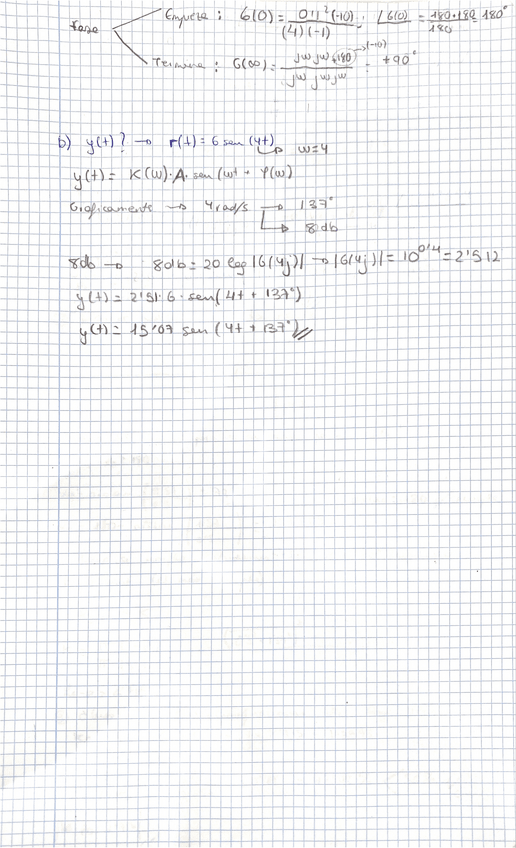 Fase
Empieza : G(0) = 0'1·1² (-10) / (4)(-1) ; ∠G(0) = 180+180 / 180 = 180°
Termina : G(∞) = jw jw +180 → (-10) / jw jw jw = +90°
b) y(t)? → r(t) = 6 sen (4t) → w=4
y(t) = K(w)·A· sen (wt + φ(w))
Gráficamente → 4 rad/s → 137°
→ 8 db
8db → 8db = 20 log |G(4j)| → |G(4j)| = 10^0'4 = 2'512
y(t) = 2'51·6 · sen (4t + 137°)
y(t) = 15'07 sen (4t + 137°)